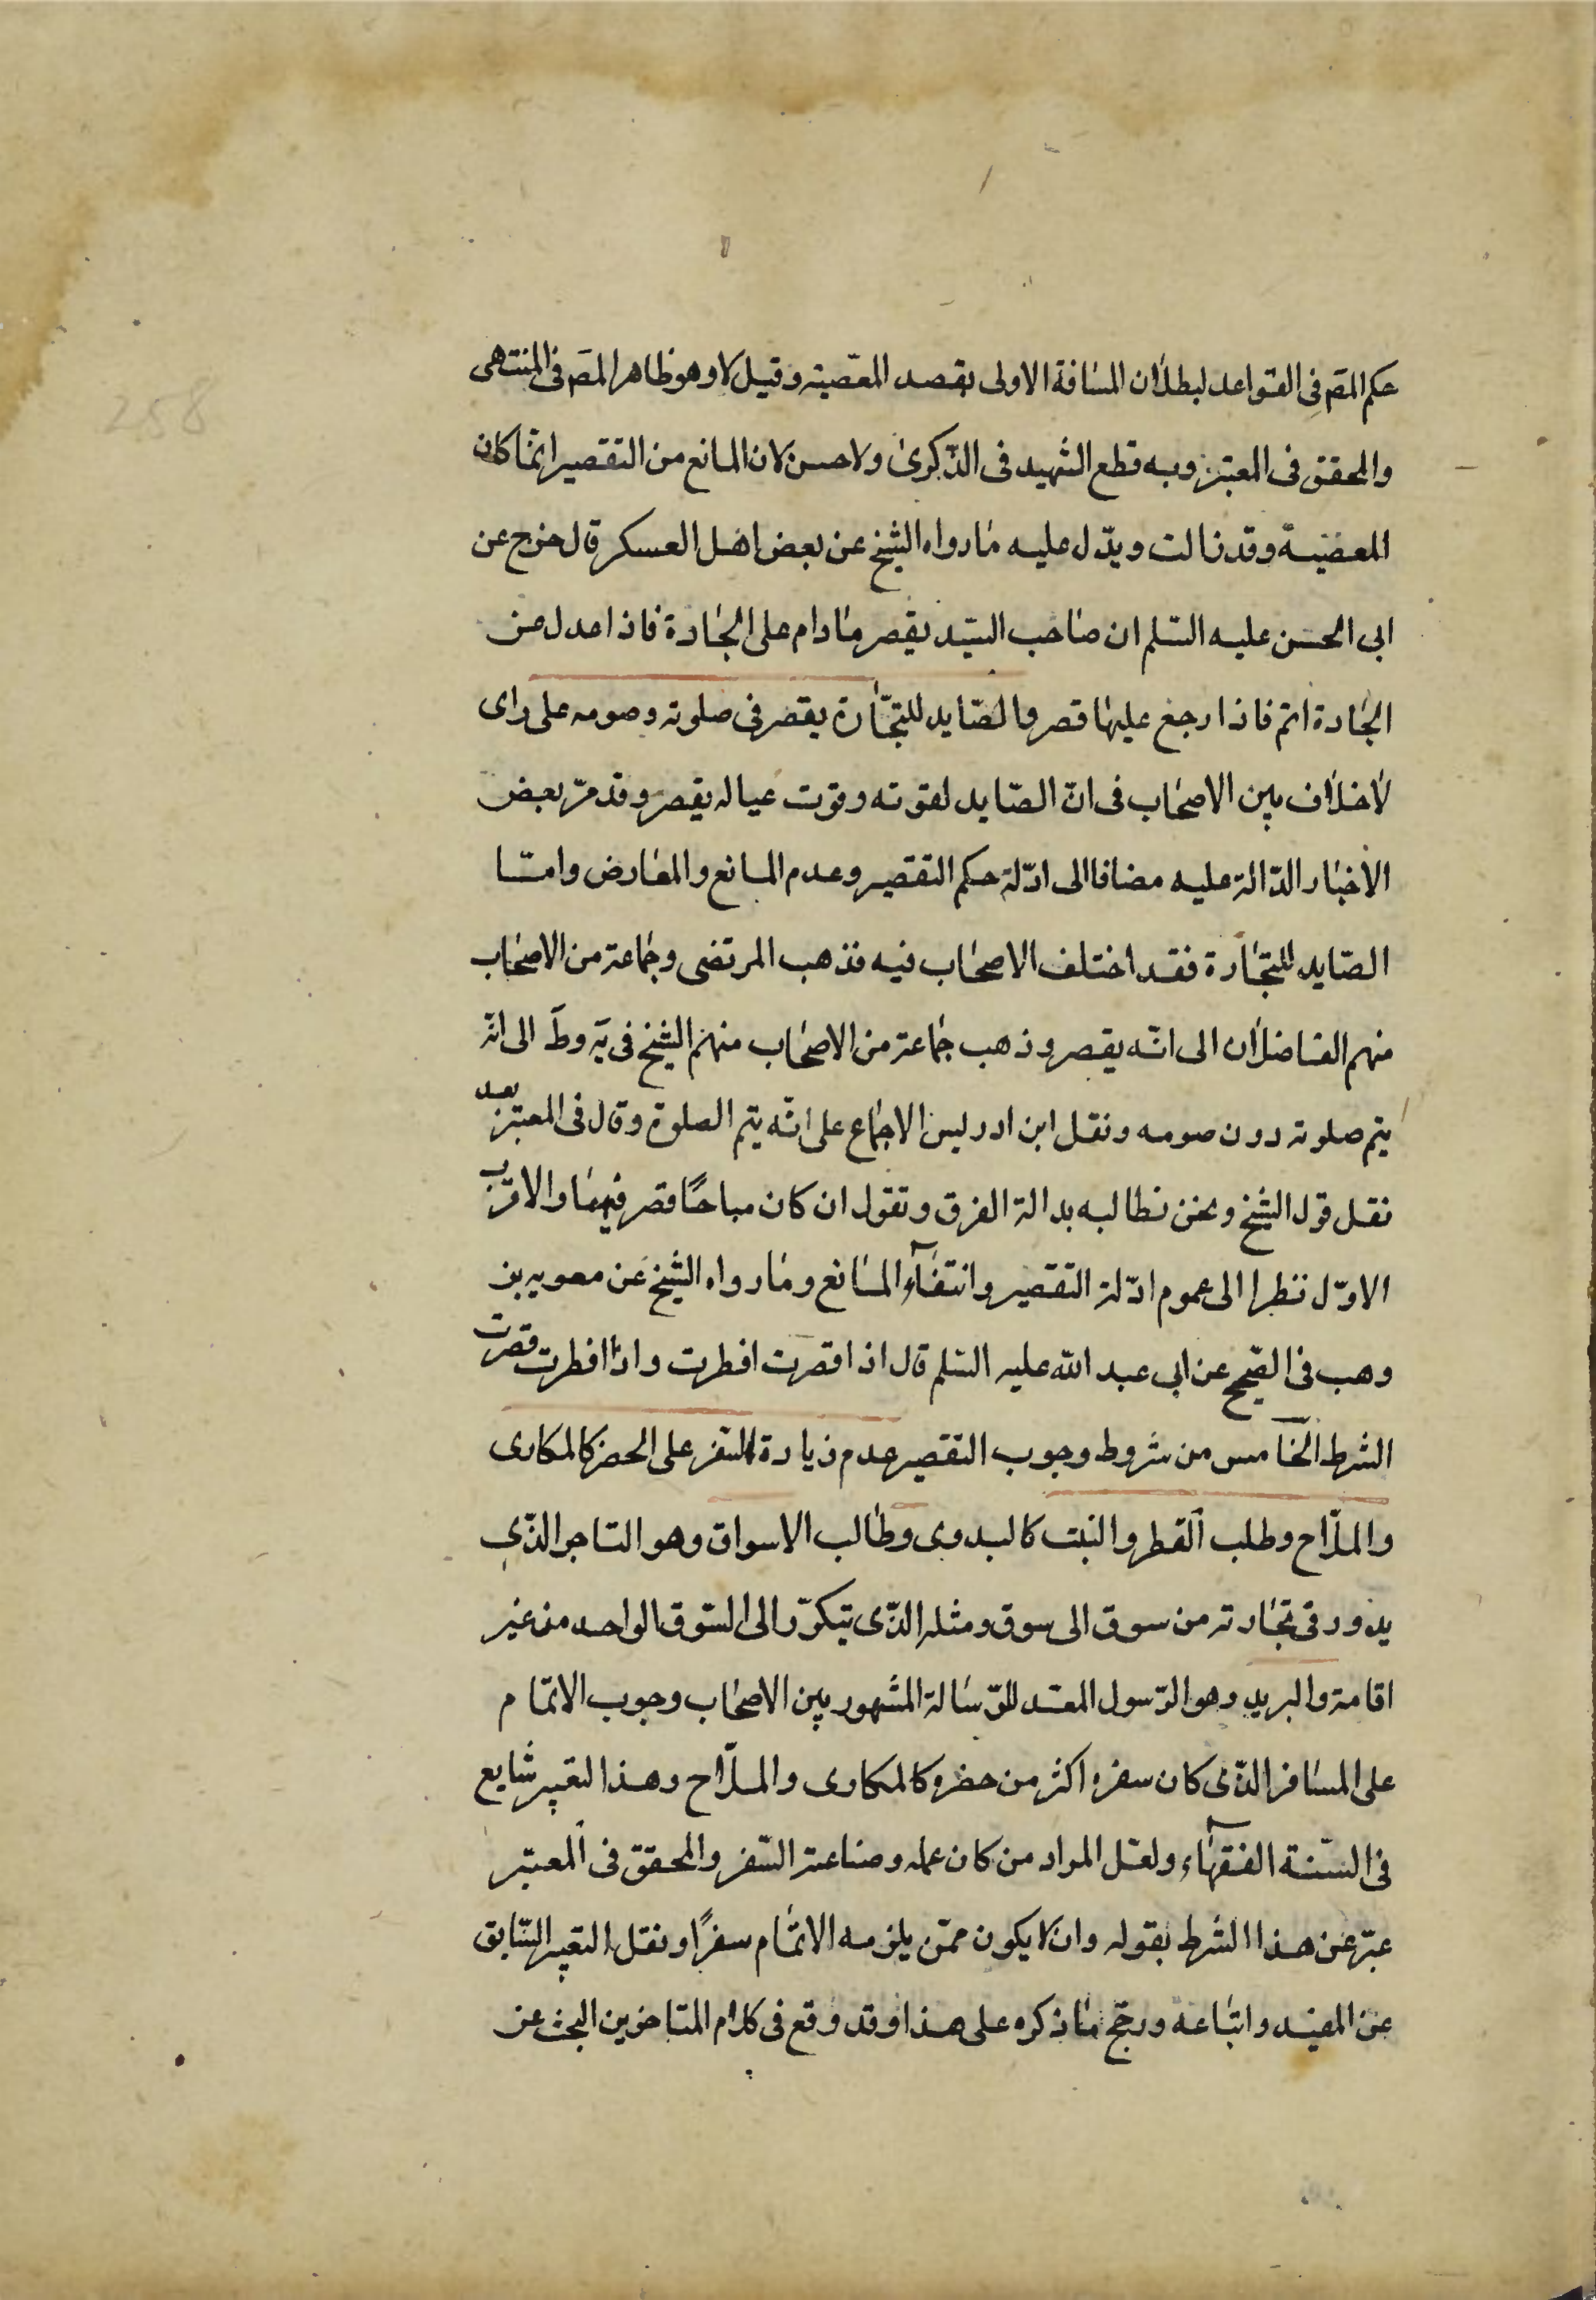 حكم المص فى القواعد لبطلان المسافة الاولى بقصد المعصية وقيل لا وهو ظاهر المص فى المنتهى
والمحقق فى المعتبر وبه قطع الشهيد فى الذكرى ولا حسن لان المانع من التقصير انما كان
المعصية وقد زالت ويدل عليه ما رواه الشيخ عن بعض اهل العسكر قال خرج عن
ابى الحسن عليه السلم ان صاحب السيد يقصر ما دام على الجادة فاذا عدل عن
الجادة اتم فاذا رجع عليها قصر والصايد للتجارة يقصر فى صلوته وصومه على راى
لا خلاف بين الاصحاب فى ان الصايد لقوته وقوت عياله يقصر وقد مر بعض
الاخبار الدالة عليه مضافا الى ادلة حكم التقصير وعدم المانع والمعارض واما
الصايد للتجارة فقد اختلف الاصحاب فيه فذهب المرتضى وجماعة من الاصحاب
منهم الفاضلان الى انه يقصر وذهب جماعة من الاصحاب منهم الشيخ فى يه وط الى انه
يتم صلوته دون صومه ونقل ابن ادريس الاجماع على انه يتم الصلوة وقال فى المعتبر بعد
نقل قول الشيخ ونحن نطالبه بدالة الفرق ونقول ان كان مباحا قصر فيهما والاقرب
الاول نظرا الى عموم ادلة التقصير وانتفاء المانع وما رواه الشيخ عن معويه بن
وهب فى الصحيح عن ابى عبد الله عليه السلم قال اذا قصرت افطرت واذا افطرت قصرت
الشرط الخامس من شروط وجوب التقصير عدم زيادة السفر على الحضر كالمكارى
والملاح وطلب القطر والنبت كالبدوى وطالب الاسواق وهو التاجر الذى
يدور فى تجارته من سوق الى سوق ومثله الذى يتكرر الى السوق الواحد من غير
اقامة والبريد وهو الرسول المعد للرسالة المشهور بين الاصحاب وجوب الاتمام
على المسافر الذى كان سفره اكثر من حضره كالمكارى والملاح وهذا التعبير شايع
فى السنة الفقهاء ولعل المراد من كان عمله وصناعته السفر والمحقق فى المعتبر
عبر عن هذا الشرط بقوله وان لا يكون ممن يلزمه الاتمام سفرا ونقل التعبير السابق
عن المفيد واتباعه ورجح ما ذكره على هذا وقد وقع فى كلام المتاخرين البحث عن
258